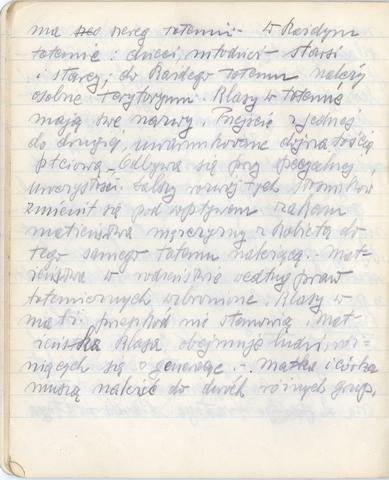 ma szereg totemii. - W każdym
totemie: dzieci, młodzież - starsi
i starcy; do każdego totemu należy
osobne terytoryum. Klasy w totemie
mają swe nazwy. Przejście z jednej
do drugiej, uwarunkowane dojrzałością
płciową - odbywa się przy specyalnej
uroczystości. Dalszy rozwój tych stosunków
zmienił się pod wpływem zakazu
małżeństwa mężczyzny z kobietą do
tego samego totemu należącą. -
w według praw
totemicznych wzbronione. Klasy w
przeszkód nie stanowią.
klasa obejmuje ludzi, róż-
niących się o generację. - Matka i córka
muszą należeć do dwóch różnych grup,